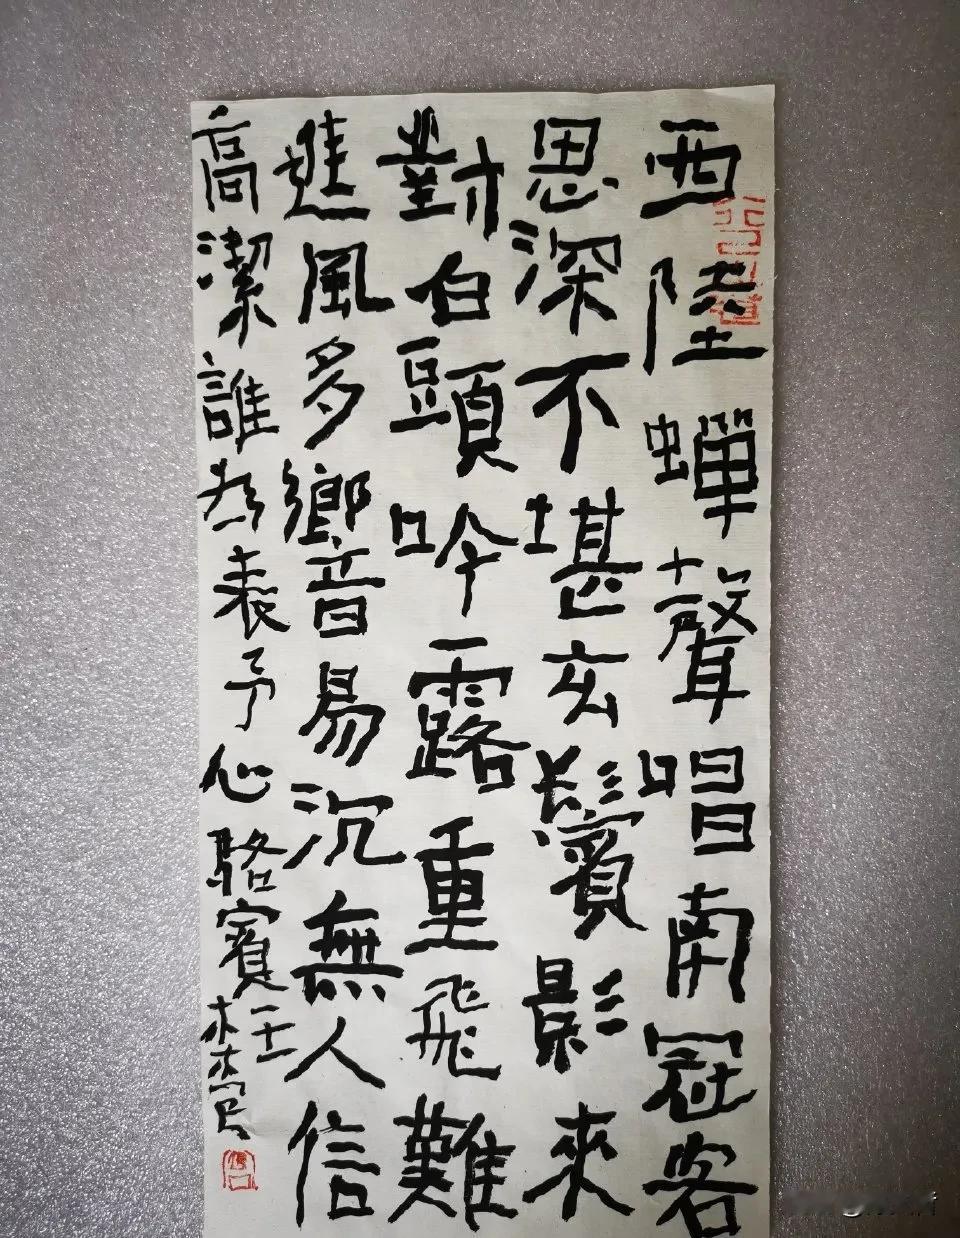 西陸蟬聲唱南冠客
思深不堪玄鬢影來
對白頭吟露重飛難
進風多響音易沉無人信
高潔誰為表予心駱賓王